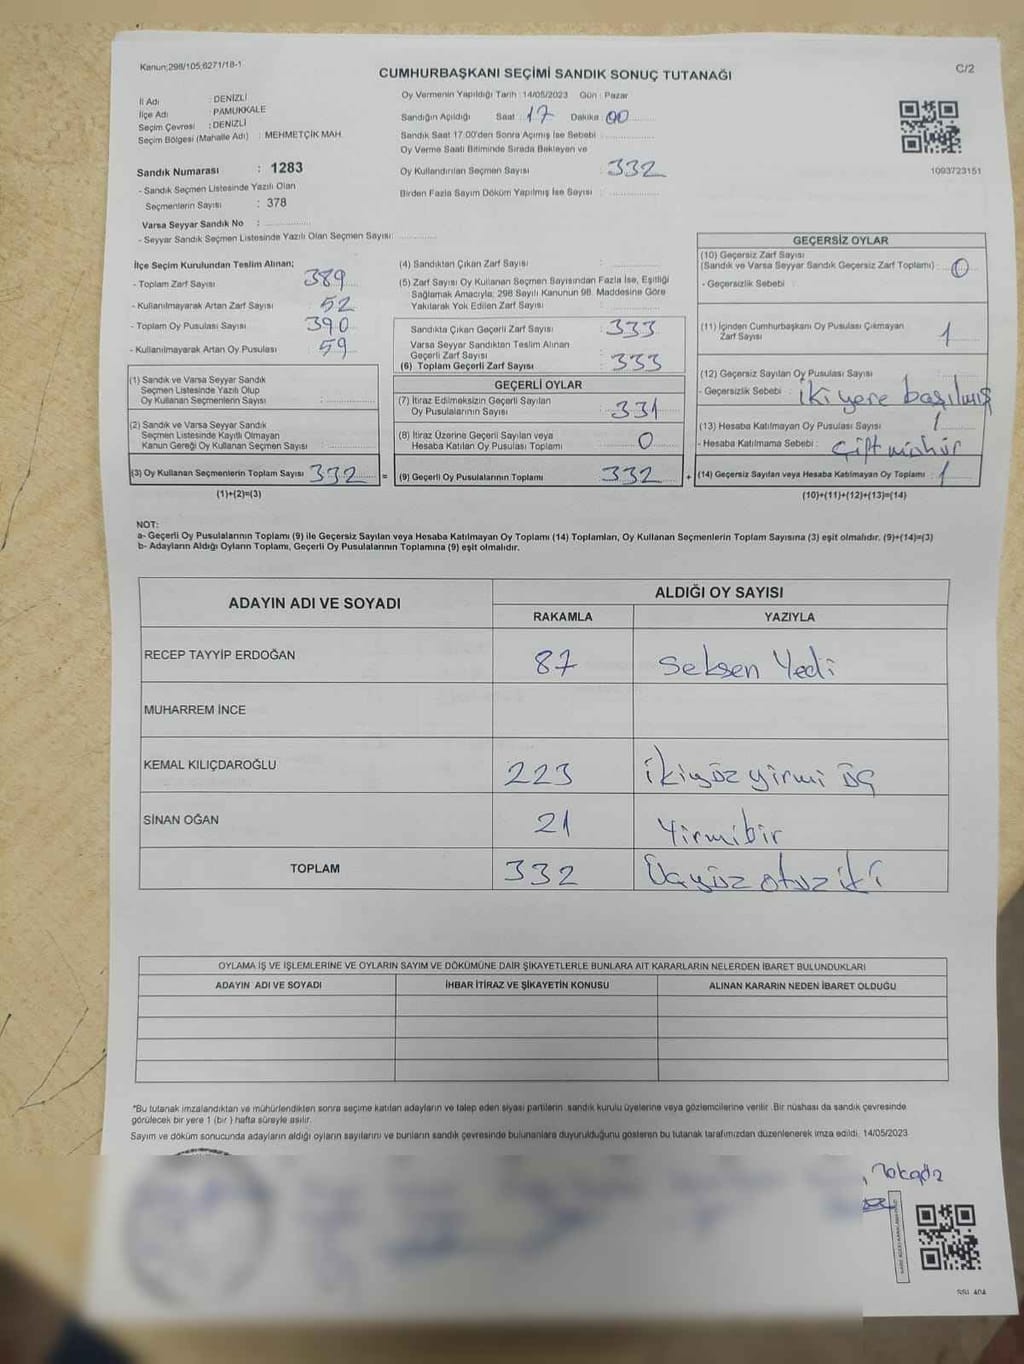 Kanun;298/105,6271/18-1
CUMHURBAŞKANI SEÇİMİ SANDIK SONUÇ TUTANAĞI
C/2
İl Adı : DENİZLİ
İlçe Adı : PAMUKKALE
Seçim Çevresi : DENİZLİ
Seçim Bölgesi (Mahalle Adı) : MEHMETÇİK MAH.
Sandık Numarası : 1283
- Sandık Seçmen Listesinde Yazılı Olan
Seçmenlerin Sayısı : 378
Varsa Seyyar Sandık No :
- Seyyar Sandık Seçmen Listesinde Yazılı Olan Seçmen Sayısı:
Oy Vermenin Yapıldığı Tarih : 14/05/2023 Gün : Pazar
Sandığın Açıldığı Saat : 17 Dakika 00
Sandık Saat 17:00'den Sonra Açımış İse Sebebi :
Oy Verme Saati Bitiminde Sırada Bekleyen ve
Oy Kullandırılan Seçmen Sayısı : 332
Birden Fazla Sayım Döküm Yapılmış İse Sayısı :
1093723151
İlçe Seçim Kurulundan Teslim Alınan;
- Toplam Zarf Sayısı : 389
- Kullanılmayarak Artan Zarf Sayısı : 52
- Toplam Oy Pusulası Sayısı : 390
- Kullanılmayarak Artan Oy Pusulası : 59
(1) Sandık ve Varsa Seyyar Sandık
Seçmen Listesinde Yazılı Olup
Oy Kullanan Seçmenlerin Sayısı :
(2) Sandık ve Varsa Seyyar Sandık
Seçmen Listesinde Kayıtlı Olmayan
Kanun Gereği Oy Kullanan Seçmen Sayısı :
(3) Oy Kullanan Seçmenlerin Toplam Sayısı : 332 =
(1)+(2)=(3)
(4) Sandıktan Çıkan Zarf Sayısı :
(5) Zarf Sayısı Oy Kullanan Seçmen Sayısından Fazla İse, Eşitliği
Sağlamak Amacıyla; 298 Sayılı Kanunun 98. Maddesine Göre
Yakılarak Yok Edilen Zarf Sayısı :
Sandıkta Çıkan Geçerli Zarf Sayısı : 333
Varsa Seyyar Sandıktan Teslim Alınan
Geçerli Zarf Sayısı :
(6) Toplam Geçerli Zarf Sayısı : 333
GEÇERLİ OYLAR
(7) İtiraz Edilmeksizin Geçerli Sayılan
Oy Pusulalarının Sayısı : 331
(8) İtiraz Üzerine Geçerli Sayılan veya
Hesaba Katılan Oy Pusulası Toplamı : 0
(9) Geçerli Oy Pusulalarının Toplamı : 332 +
GEÇERSİZ OYLAR
(10) Geçersiz Zarf Sayısı
(Sandık ve Varsa Seyyar Sandık Geçersiz Zarf Toplamı) : 0
- Geçersizlik Sebebi :
(11) İçinden Cumhurbaşkanı Oy Pusulası Çıkmayan
Zarf Sayısı : 1
(12) Geçersiz Sayılan Oy Pusulası Sayısı :
- Geçersizlik Sebebi : İki yere basılmış
(13) Hesaba Katılmayan Oy Pusulası Sayısı : 1
- Hesaba Katılmama Sebebi : Çift mühür
(14) Geçersiz Sayılan veya Hesaba Katılmayan Oy Toplamı : 1
(10)+(11)+(12)+(13)=(14)
NOT:
a- Geçerli Oy Pusulalarının Toplamı (9) ile Geçersiz Sayılan veya Hesaba Katılmayan Oy Toplamı (14) Toplamları, Oy Kullanan Seçmenlerin Toplam Sayısına (3) eşit olmalıdır. (9)+(14)=(3)
b- Adayların Aldığı Oyların Toplamı, Geçerli Oy Pusulalarının Toplamına (9) eşit olmalıdır.
ADAYIN ADI VE SOYADI
ALDIĞI OY SAYISI
RAKAMLA YAZIYLA
RECEP TAYYİP ERDOĞAN 87 Seksen Yedi
MUHARREM İNCE
KEMAL KILIÇDAROĞLU 223 İkiyüz yirmi üç
SİNAN OĞAN 21 Yirmibir
TOPLAM 332 Üçyüz otuz iki
OYLAMA İŞ VE İŞLEMLERİNE VE OYLARIN SAYIM VE DÖKÜMÜNE DAİR ŞİKAYETLERLE BUNLARA AİT KARARLARIN NELERDEN İBARET BULUNDUKLARI
ADAYIN ADI VE SOYADI İHBAR İTİRAZ VE ŞİKAYETİN KONUSU ALINAN KARARIN NEDEN İBARET OLDUĞU
*Bu tutanak imzalandıktan ve mühürlendikten sonra seçime katılan adayların ve talep eden siyasi partilerin sandık kurulu üyelerine veya gözlemcilerine verilir. Bir nüshası da sandık çevresinde
görülecek bir yere 1 (bir ) hafta süreyle asılır.
Sayım ve döküm sonucunda adayların aldığı oyların sayılarını ve bunların sandık çevresinde bulunanlara duyurulduğunu gösteren bu tutanak tarafımızdan düzenlenerek imza edildi. 14/05/2023